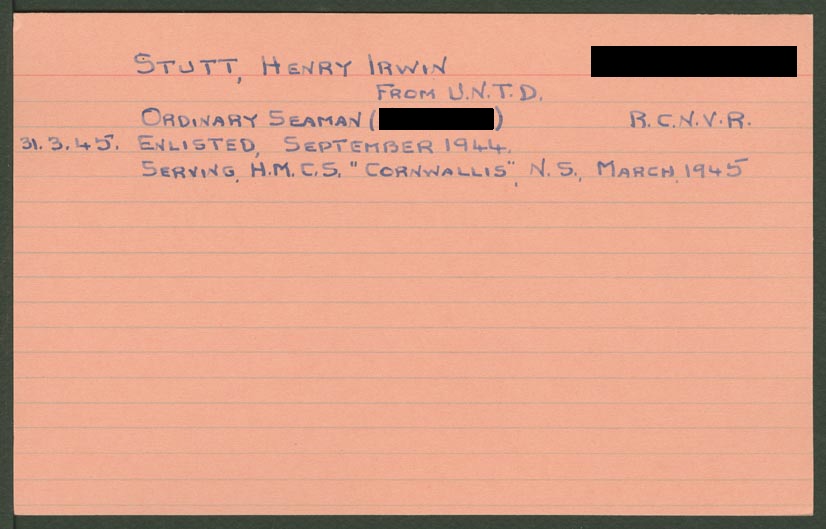 STUTT, HENRY IRWIN
FROM U.N.T.D.
ORDINARY SEAMAN ( ) R.C.N.V.R.
31.3.45. ENLISTED, SEPTEMBER 1944.
SERVING, H.M.C.S. "CORNWALLIS", N.S., MARCH, 1945